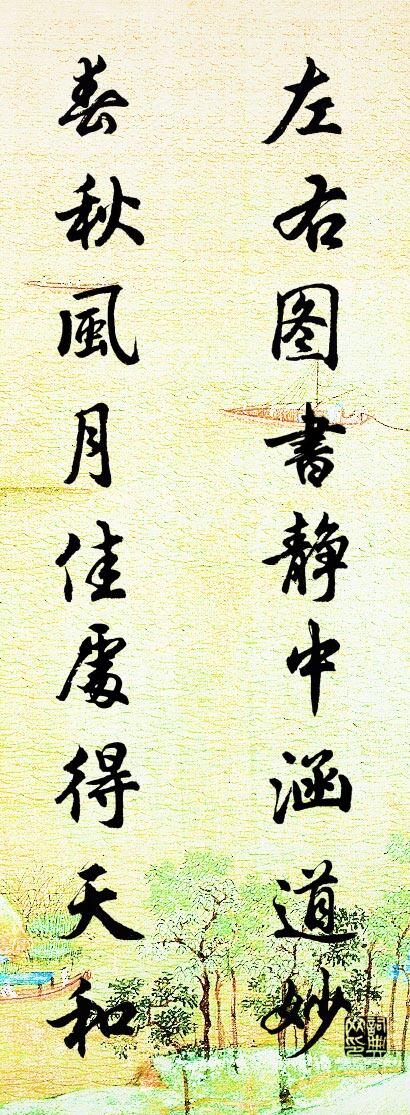 左右图書静中涵道妙
春秋風月佳處得天和